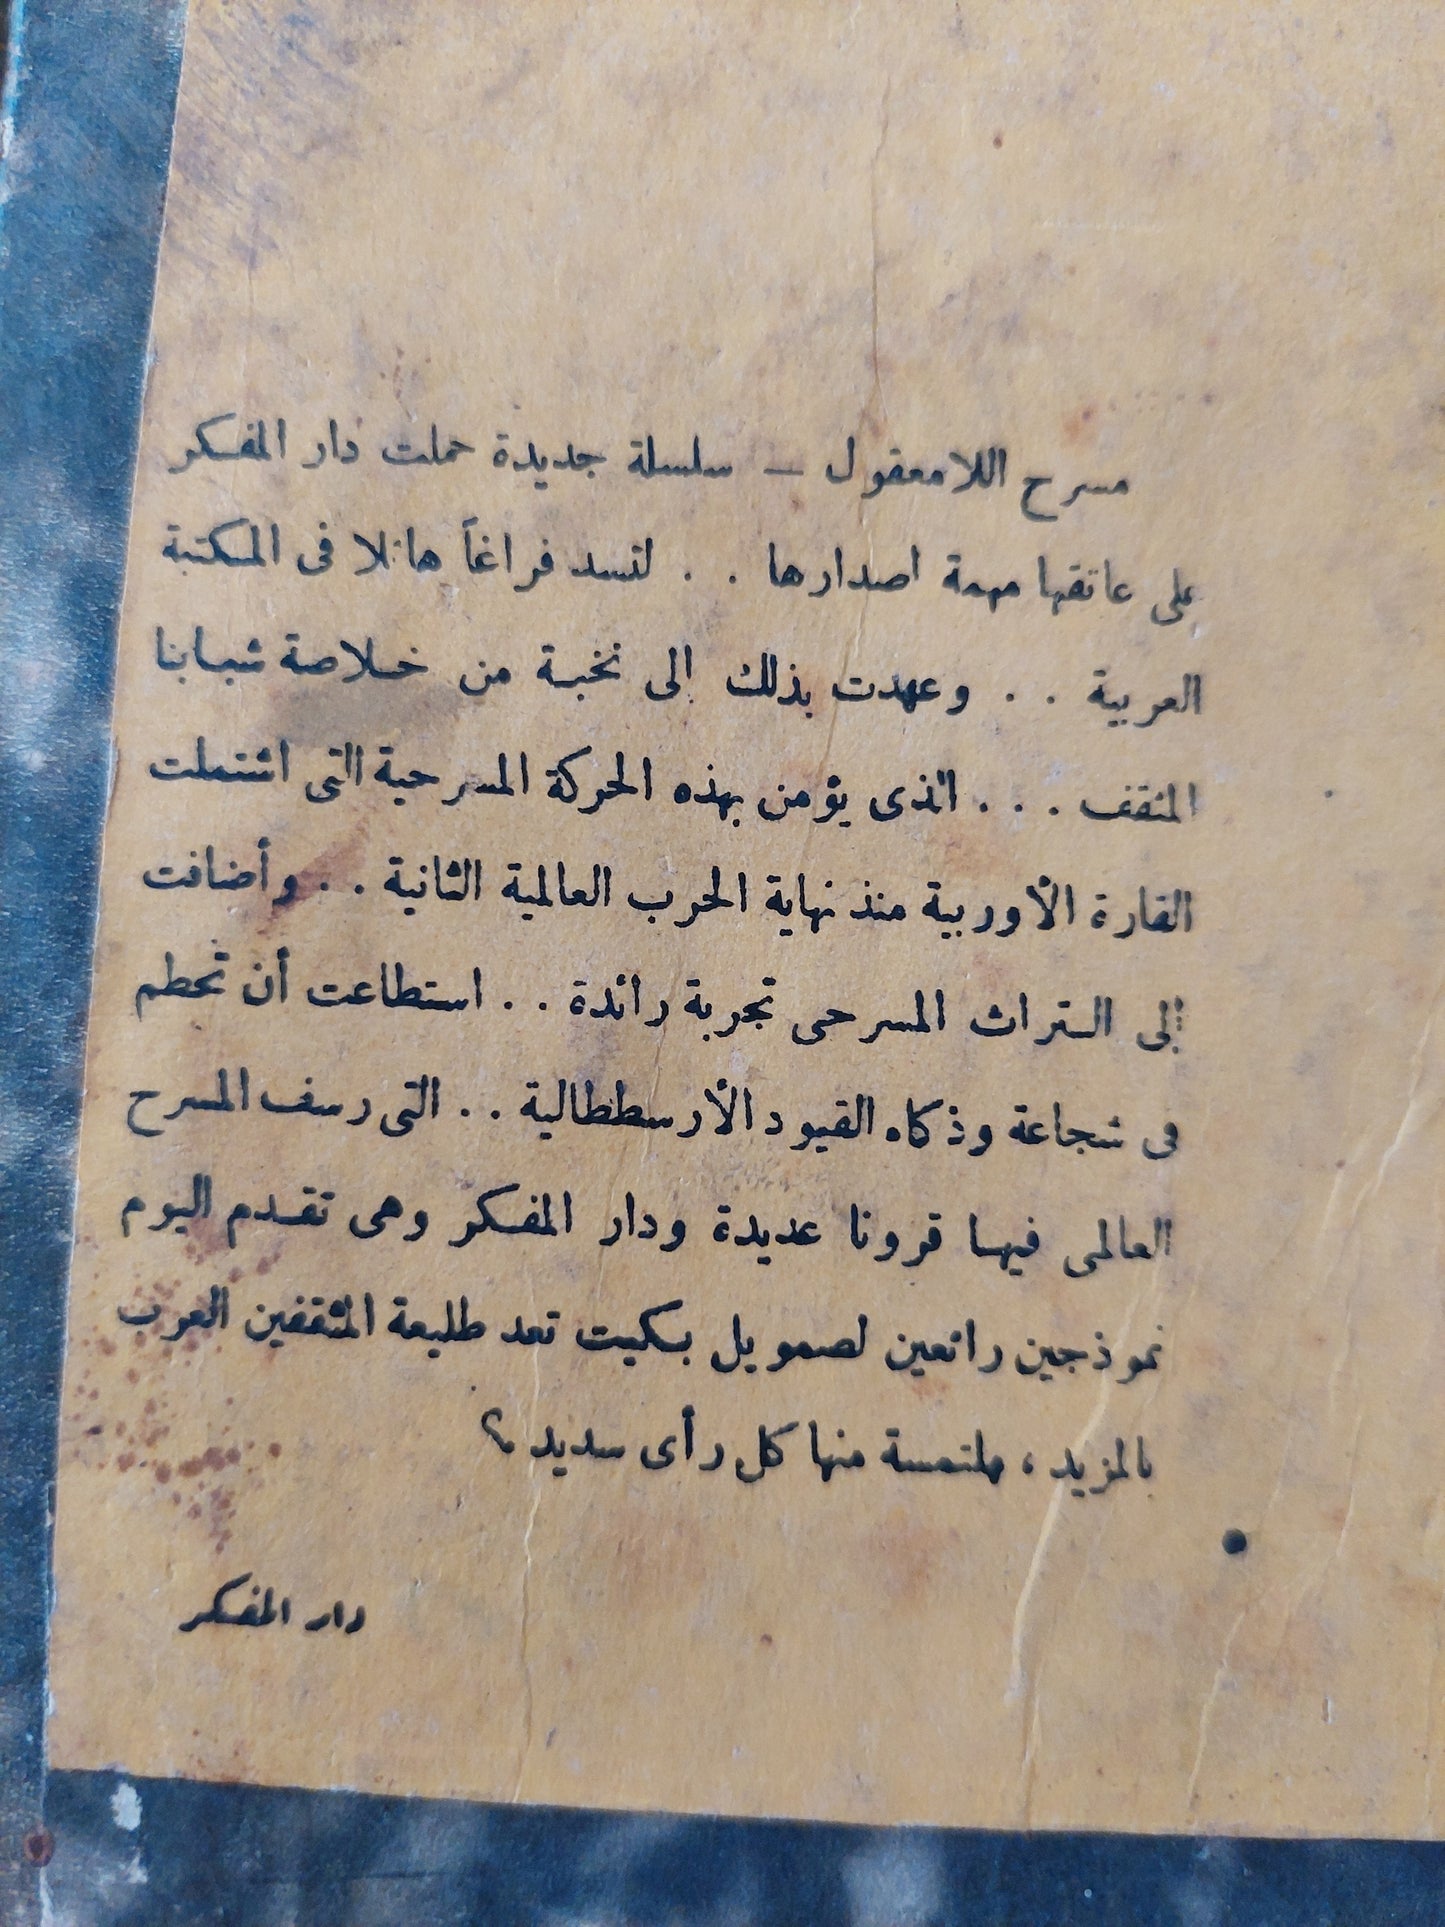 مسرح اللامعقول – سلسلة جديدة حملت دار المفكر
على عاتقها مهمة اصدارها . . لتسد فراغاً هائلا فى المكتبة
العربية . . وعهدت بذلك إلى نخبة من خلاصة شبابنا
المثقف . . . الذى يؤمن بهذه الحركة المسرحية التى اشتملت
القارة الأوربية منذ نهاية الحرب العالمية الثانية . . وأضافت
إلى التراث المسرحى تجربة رائدة . . استطاعت أن تحطم
فى شجاعة وذكاء القيود الأرسططالية . . التى رسف المسرح
العالمى فيها قرونا عديدة ودار المفكر وهى تقدم اليوم
نموذجين رائعين لصمويل بكيت تعد طليعة المثقفين العرب
بالمزيد ، ملتمسة منها كل رأى سديد ؟
دار المفكر